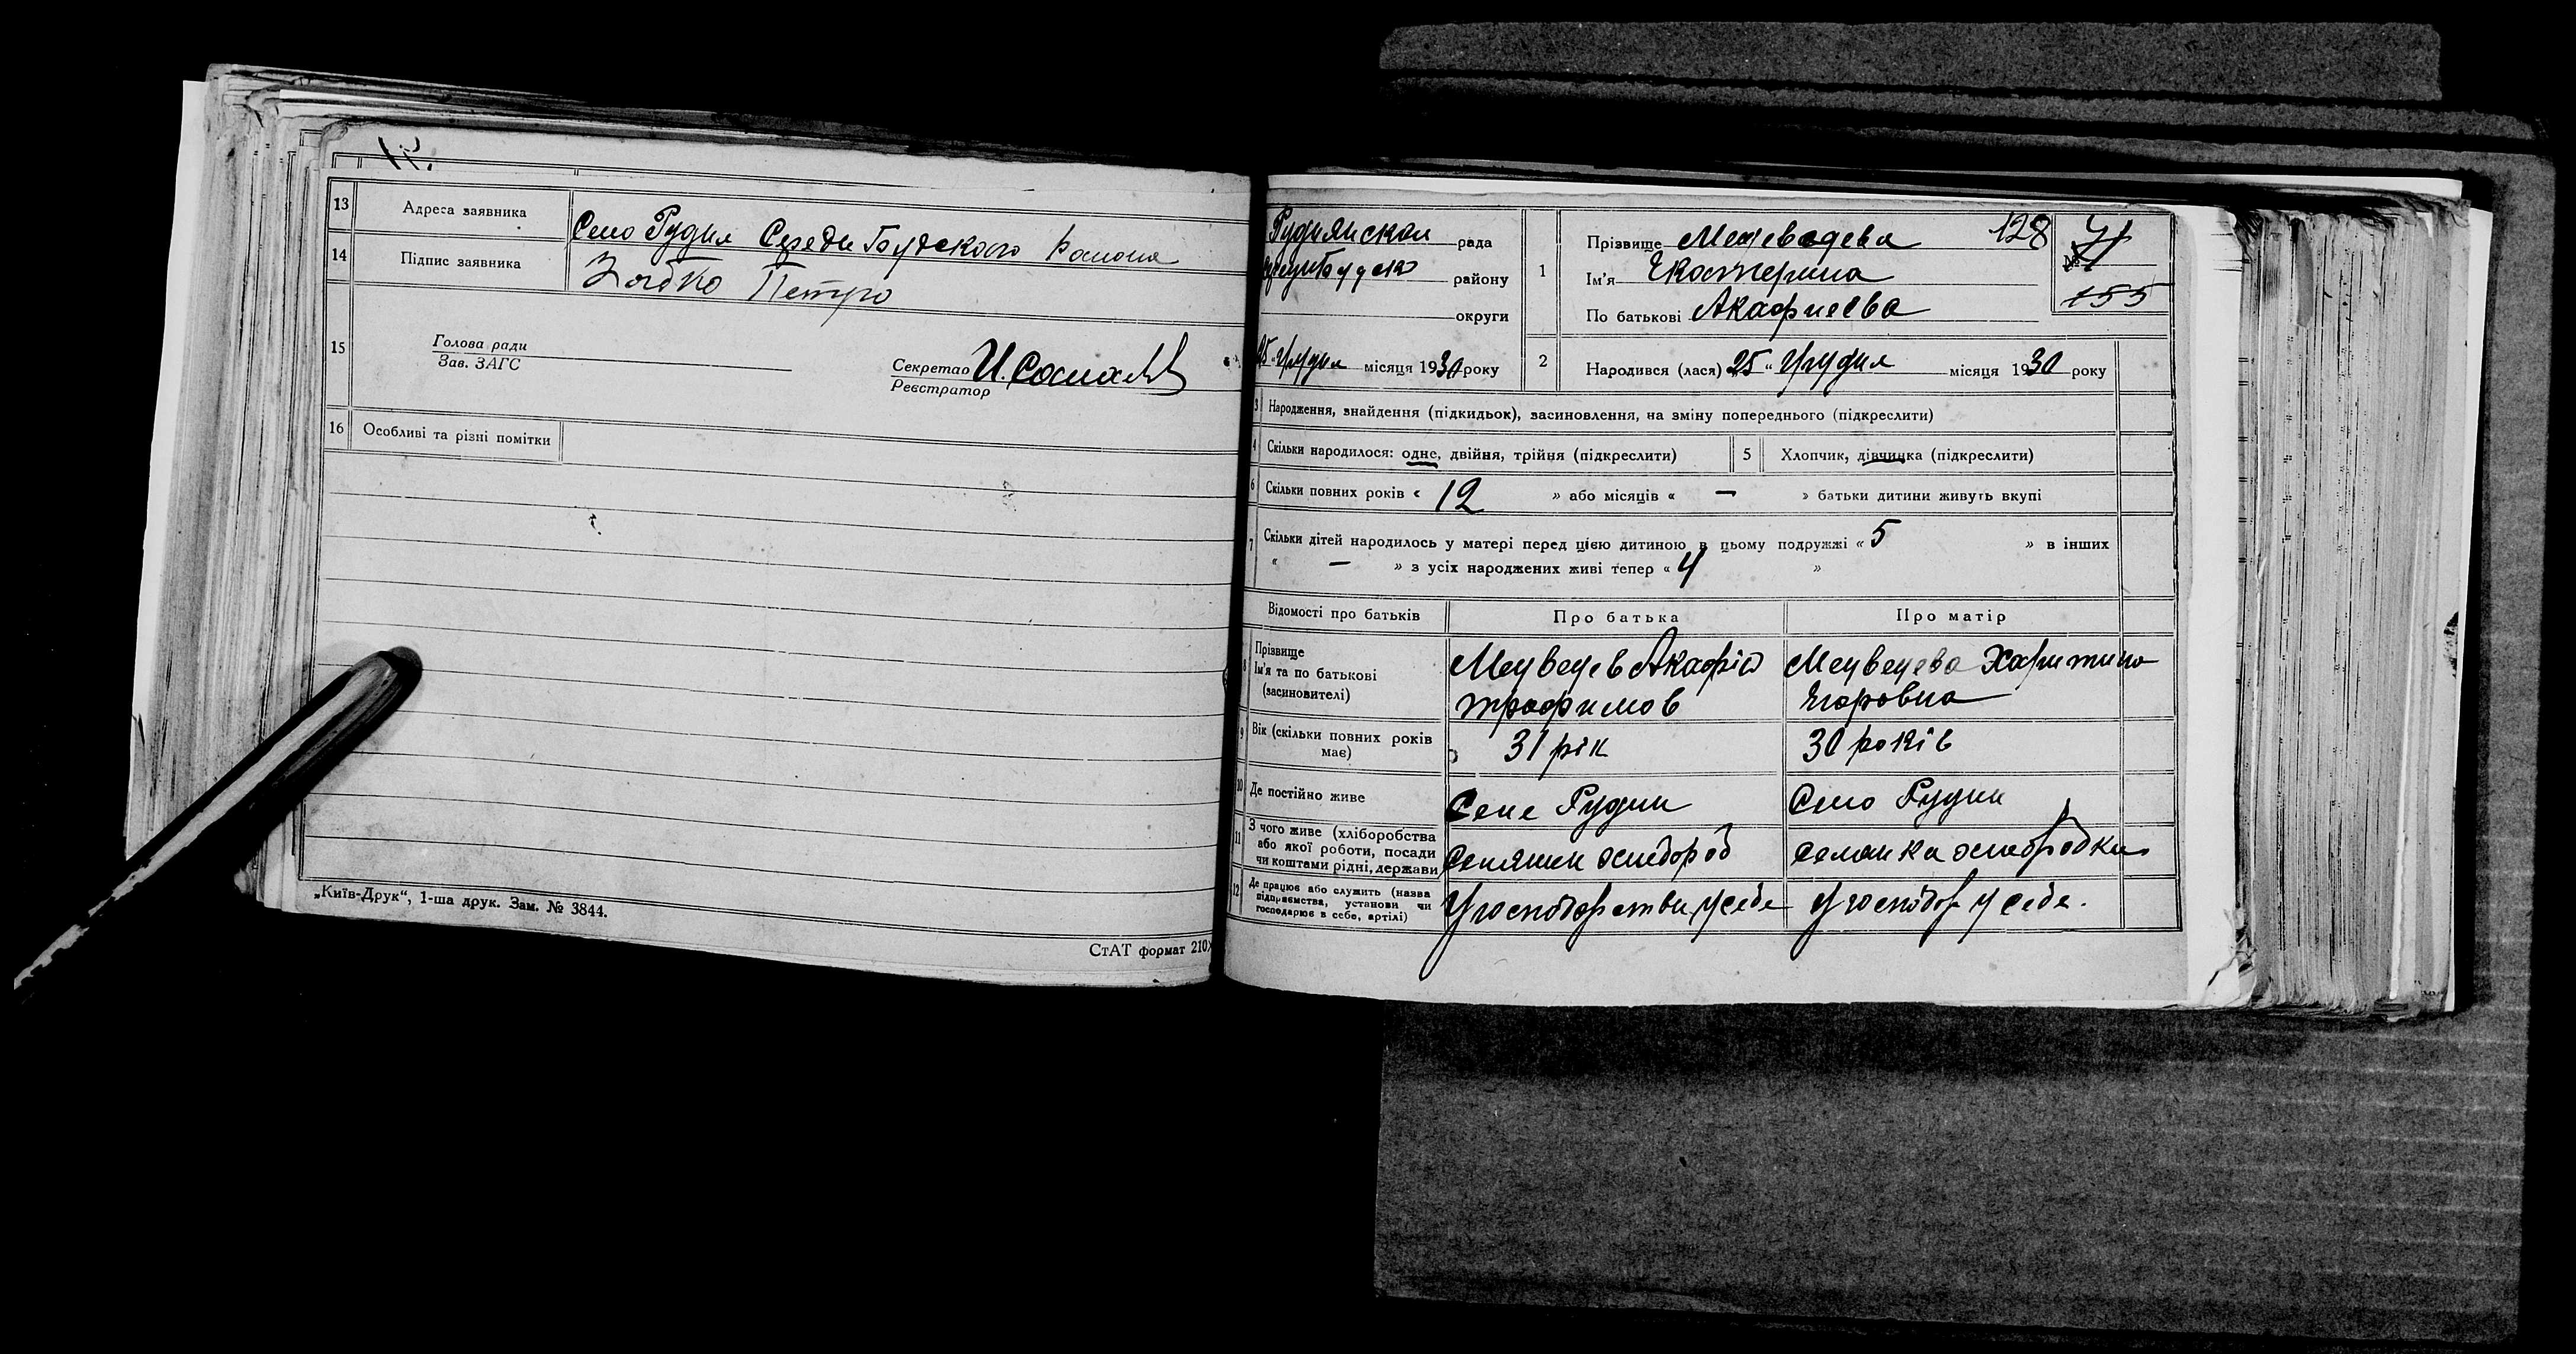 13 Адреса заявника Село Рудня Середи Будского Района
14 Підпис заявника Петро
15 Голова ради
Зав. ЗАГС
Секретар И.
Реєстратор
16 Особливі та різні помітки
„Київ-Друк“, 1-ша друк. Зам. № 3844.
СтАТ формат 210
Руднянскоя рада
району
округи
25 Грудня місяця 1930 року
1 Прізвище Медеведева 128
Ім'я Екатерина
По батькові Акафиева
№
155
2 Народився (лася) „25“ Грудня місяця 1930 року
3 Народження, знайдення (підкидьок), засиновлення, на зміну попереднього (підкреслити)
4 Скільки народилося: одне, двійня, трійня (підкреслити) 5 Хлопчик, дівчинка (підкреслити)
6 Скільки повних років « 12 » або місяців « — » батьки дитини живуть вкупі
7 Скільки дітей народилось у матері перед цією дитиною в цьому подружжі « 5 » в інших
« — » з усіх народжених живі тепер « 4 »
Відомості про батьків Про батька Про матір
8 Прізвище
Ім'я та по батькові
(засиновителі)
Медведев Акафій
трофимов
Медведева Харитина
Егоровна
9 Вік (скільки повних років
має)
31 рік
30 років
10 Де постійно живе Селе Рудни Село Рудни
11 З чого живе (хліборобства
або якої роботи, посади
чи коштами рідні, держави)
Селянин хлебороб
селянка
12 Де працює або служить (назва
підприємства, установи чи
господарює в себе, артілі)
У господарстви у себе
У господар у себе.